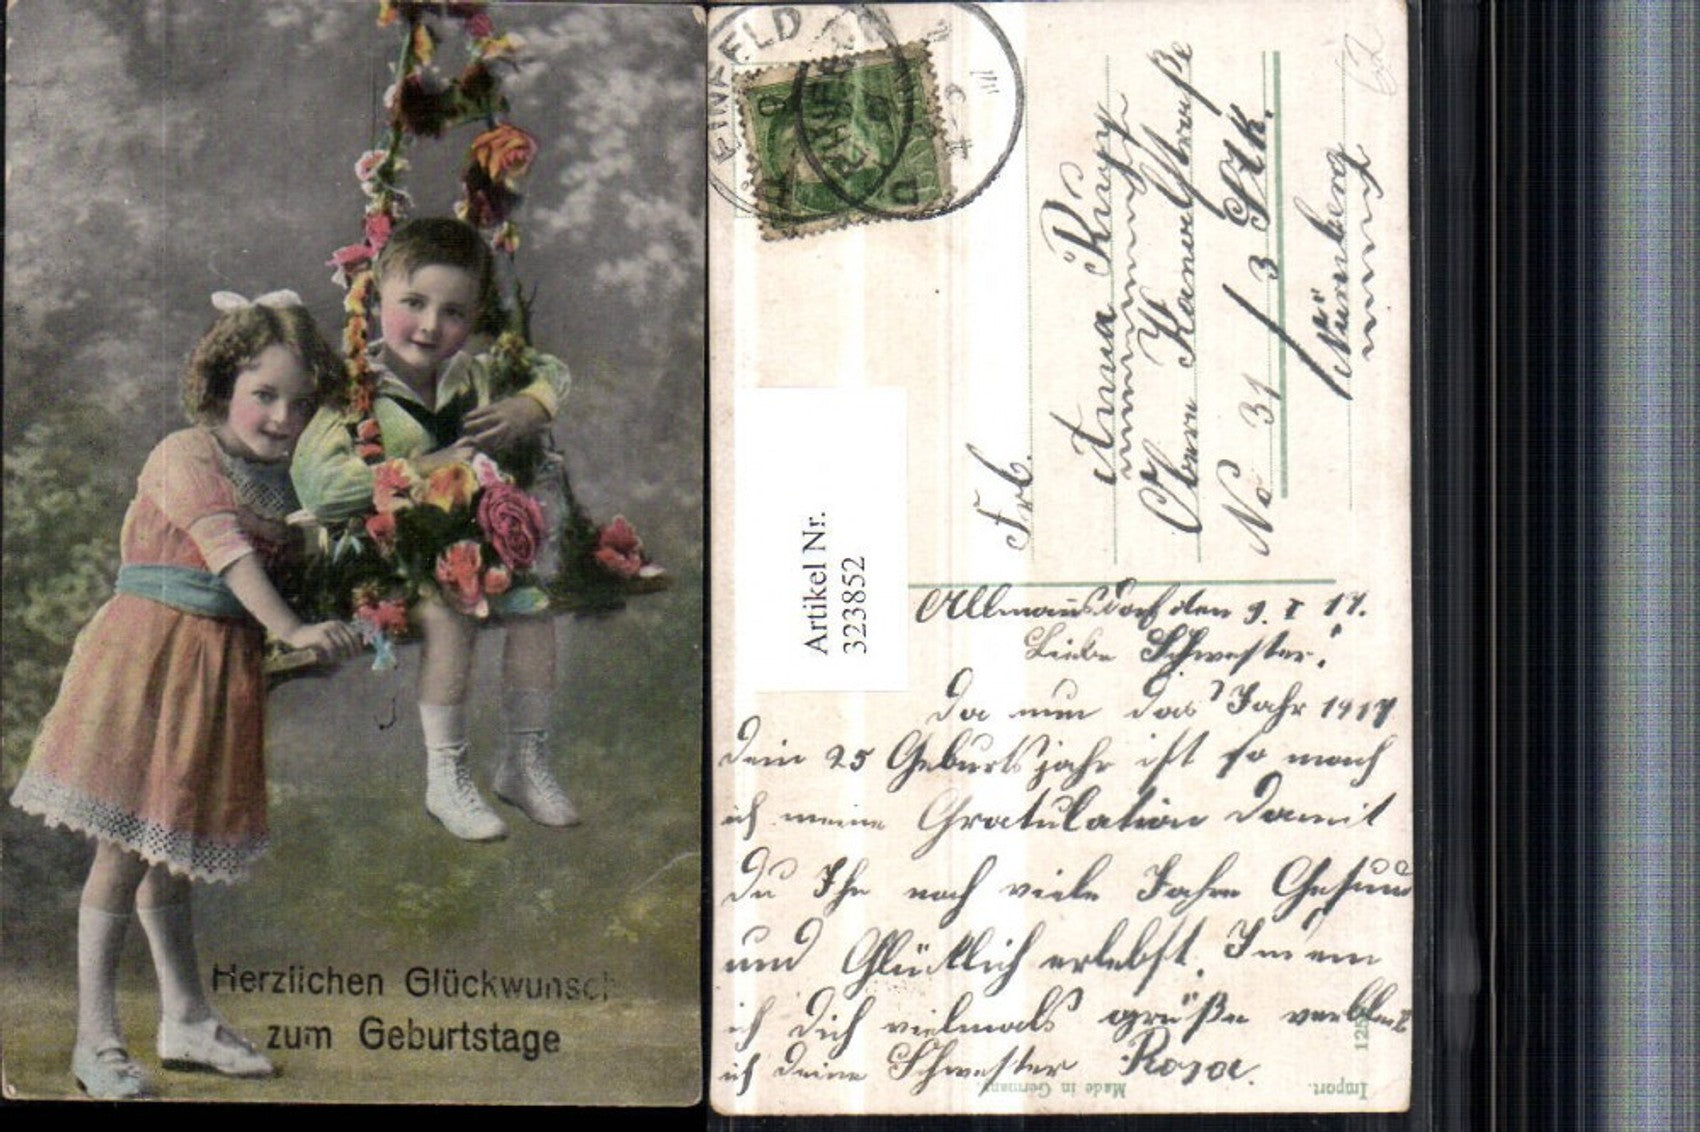 Herzlichen Glückwunsch
zum Geburtstage
EINFELD
Artikel Nr.
323852
Frl.
Anna Rupp
Obere Kanalstraße
No 31 / 3 Stk.
Nürnberg
Allmannsdorf den 9. I 17.
Liebe Schwester!
Da nun das Jahr 1917
dein 25 Geburtsjahr ist so mach
ich meine Gratulation damit
du Ihn noch viele Jahre Gesund
und Glücklich erlebst. Indem
ich dich vielmals grüße verbleibe
ich deine Schwester Rosa.
Made in Germany.
Import.